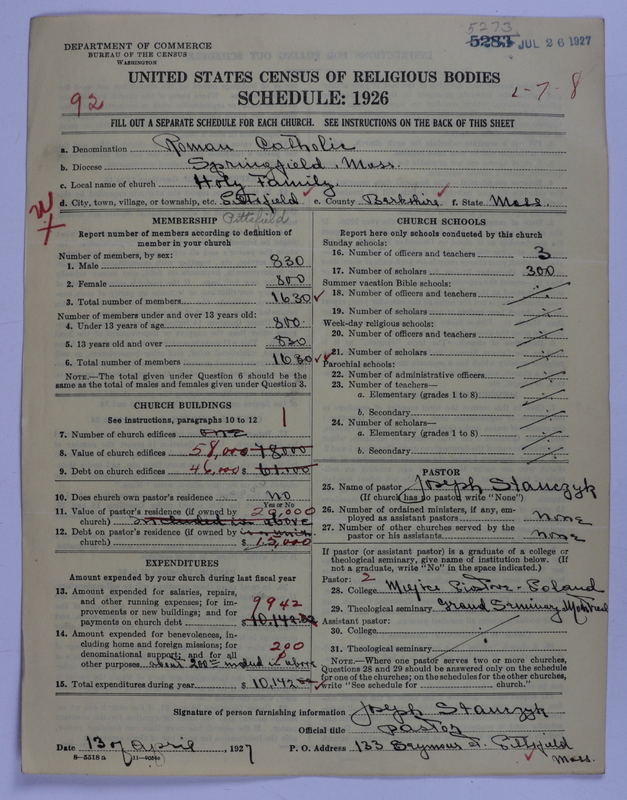 5273
5283 JUL 26 1927
DEPARTMENT OF COMMERCE
BUREAU OF THE CENSUS
WASHINGTON
UNITED STATES CENSUS OF RELIGIOUS BODIES
SCHEDULE: 1926
92
2-7-8
FILL OUT A SEPARATE SCHEDULE FOR EACH CHURCH. SEE INSTRUCTIONS ON THE BACK OF THIS SHEET
a. Denomination Roman Catholic
b. Diocese Springfield, Mass.
c. Local name of church Holy Family
d. City, town, village, or township, etc. Pittsfield e. County Berkshire f. State Mass.
Pittsfield
MEMBERSHIP
Report number of members according to definition of
member in your church
Number of members, by sex:
1. Male 830
2. Female 800
3. Total number of members 1630
Number of members under and over 13 years old:
4. Under 13 years of age 800
5. 13 years old and over 830
6. Total number of members 1630
NOTE.—The total given under Question 6 should be the
same as the total of males and females given under Question 3.
CHURCH BUILDINGS
See instructions, paragraphs 10 to 12
1
7. Number of church edifices one
8. Value of church edifices 58,000 78000
9. Debt on church edifices $ 46,000 61.100
10. Does church own pastor's residence no
Yes or No
11. Value of pastor's residence (if owned by 20,000
church) included in above
12. Debt on pastor's residence (if owned by
church) $ 15,000
EXPENDITURES
Amount expended by your church during last fiscal year
13. Amount expended for salaries, repairs,
and other running expenses; for im-
provements or new buildings; and for
payments on church debt $ 10,142
9942
14. Amount expended for benevolences, in-
cluding home and foreign missions; for
denominational support; and for all
200
other purposes about 200 includ in above
15. Total expenditures during year $ 10,142
CHURCH SCHOOLS
Report here only schools conducted by this church
Sunday schools:
16. Number of officers and teachers 3
17. Number of scholars 300
Summer vacation Bible schools:
18. Number of officers and teachers
19. Number of scholars
Week-day religious schools:
20. Number of officers and teachers
21. Number of scholars
Parochial schools:
22. Number of administrative officers
23. Number of teachers—
a. Elementary (grades 1 to 8)
b. Secondary
24. Number of scholars—
a. Elementary (grades 1 to 8)
b. Secondary
PASTOR
25. Name of pastor Joseph Stanczyk
(If church has no pastor, write "None")
26. Number of ordained ministers, if any, em-
ployed as assistant pastors none
27. Number of other churches served by the
pastor or his assistants none
If pastor (or assistant pastor) is a graduate of a college or
theological seminary, give name of institution below. (If
not a graduate, write "No" in the space indicated.)
Pastor: 2
28. College Poland
29. Theological seminary Grand Seminary Montreal
Assistant pastor:
30. College
31. Theological seminary
NOTE.—Where one pastor serves two or more churches,
Questions 28 and 29 should be answered only on the schedule
for one of the churches; on the schedules for the other churches,
write "See schedule for church."
Signature of person furnishing information Joseph Stanczyk
Official title Pastor
Date 13 of April 1927 P. O. Address 133 Seymour St. Pittsfield
Mass.
8-5518a